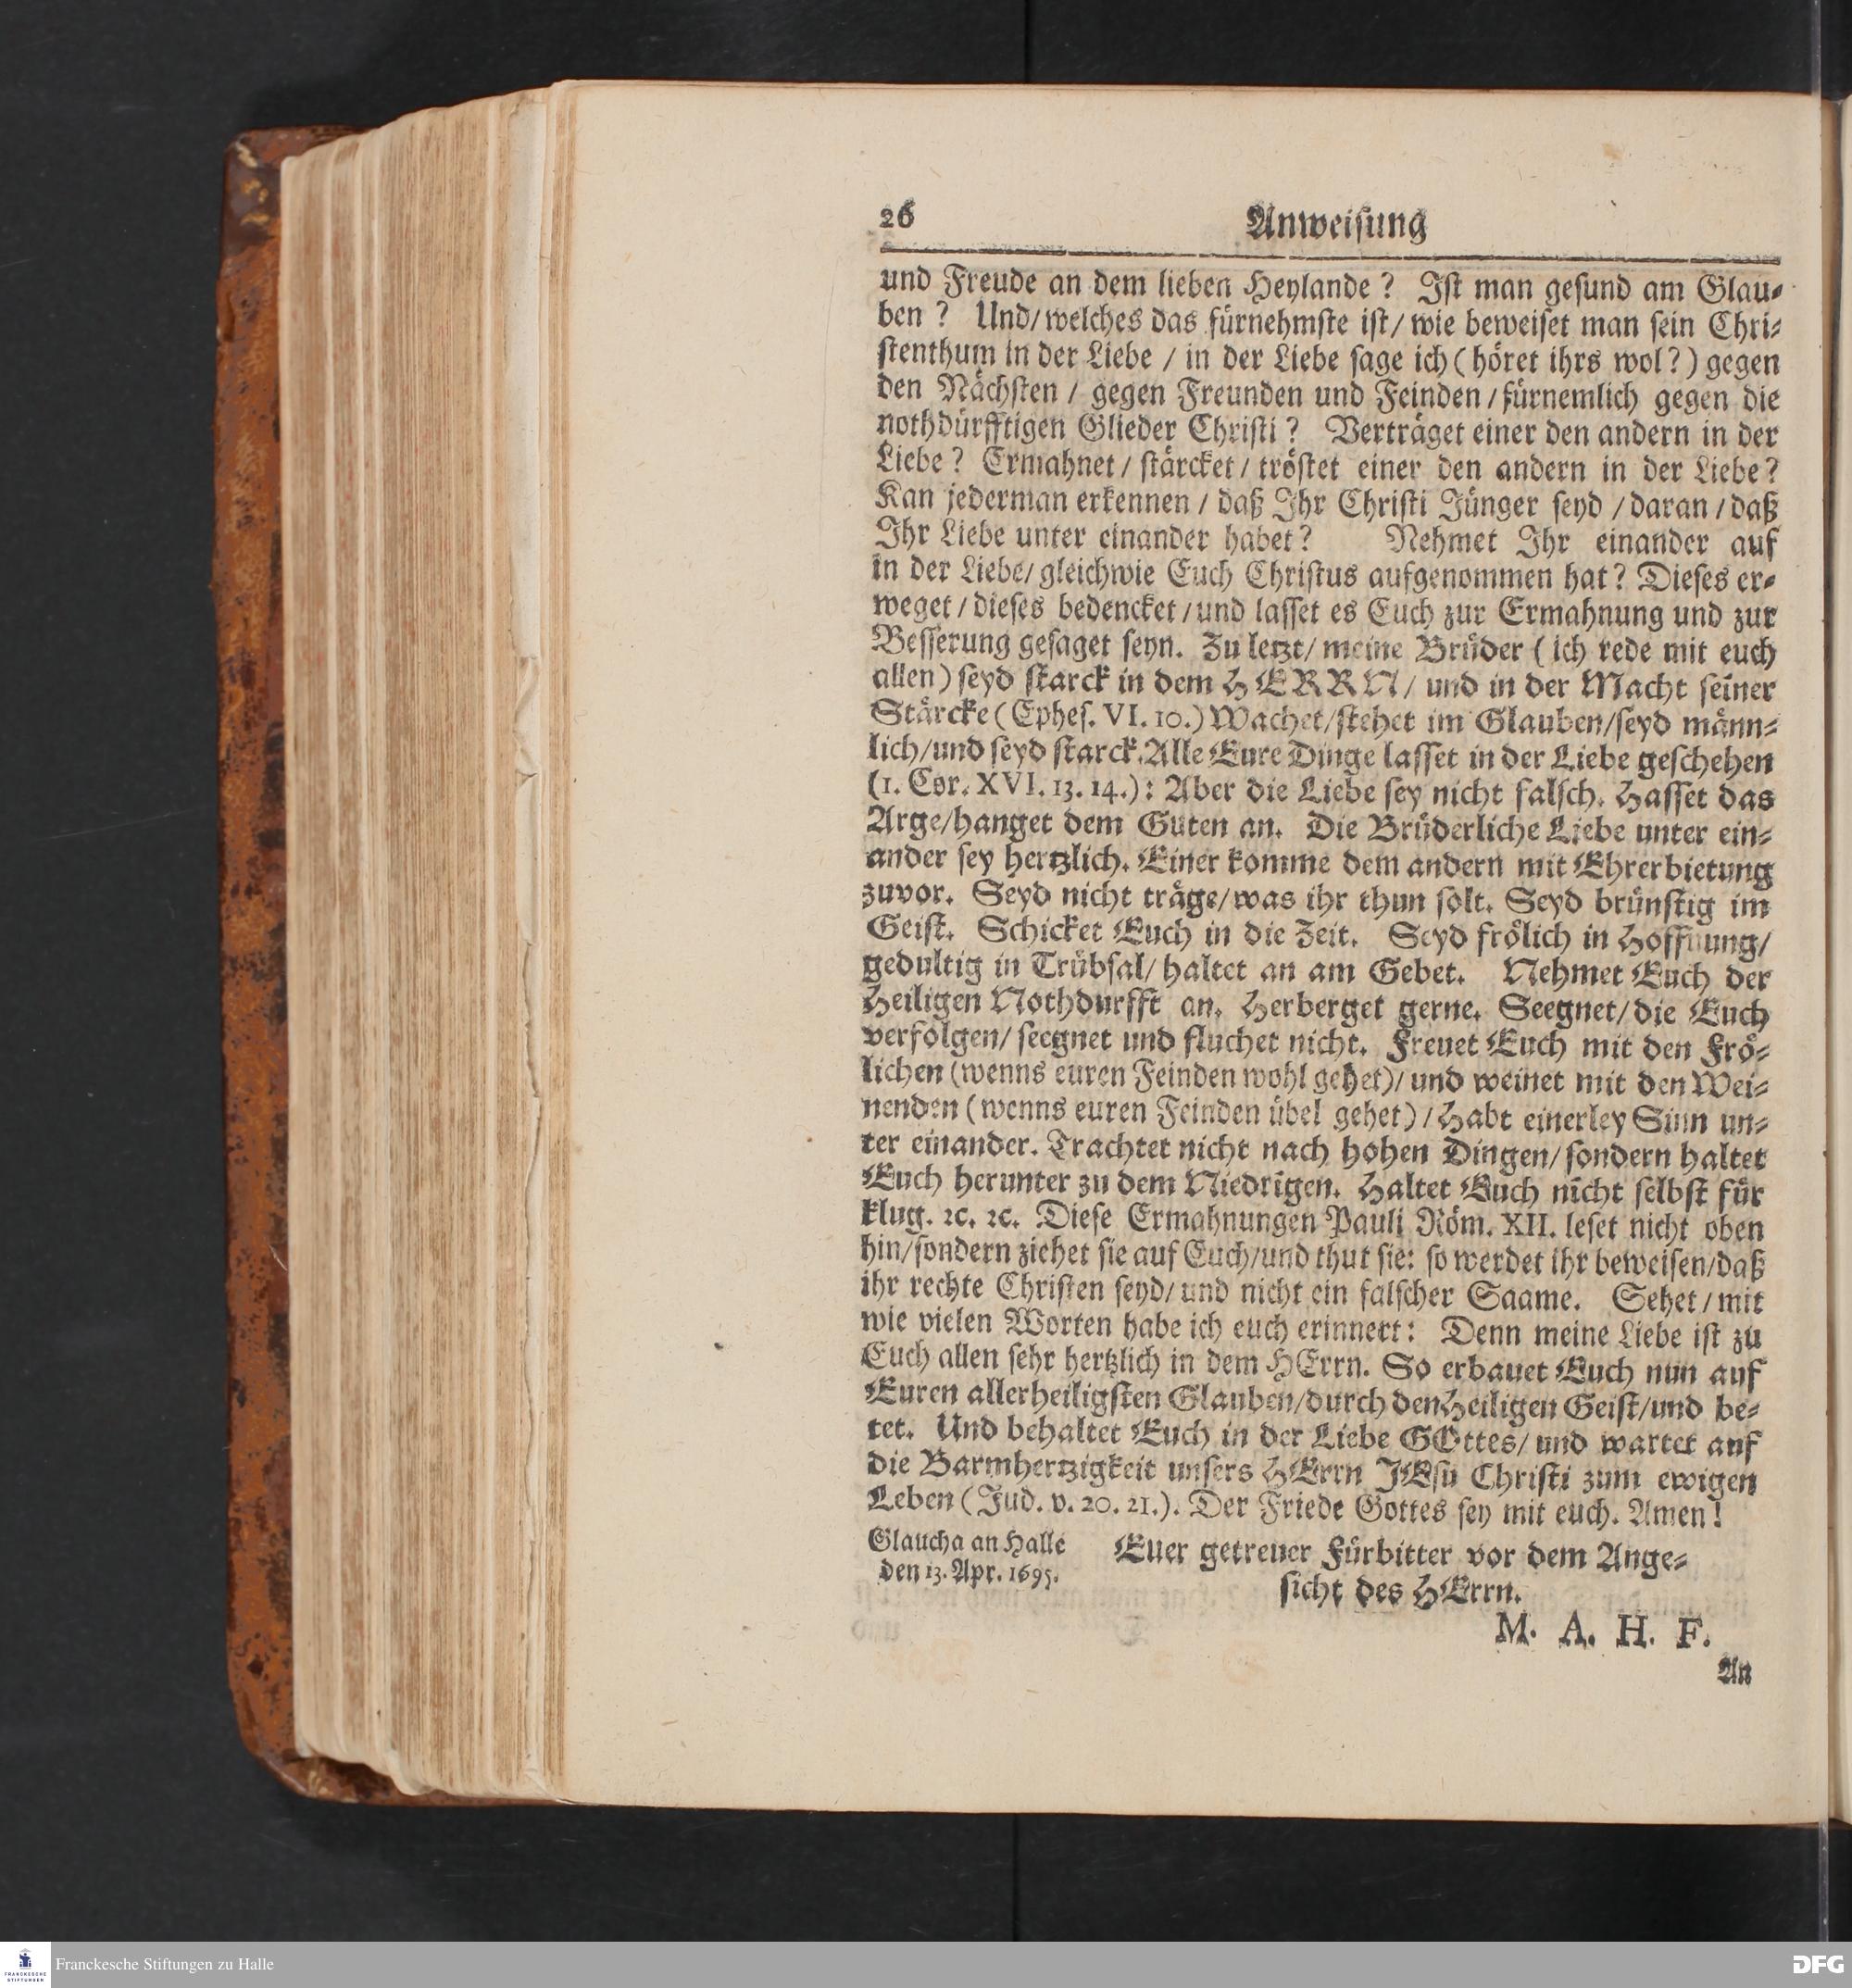 26 Anweisung
und Freude an dem lieben Heylande? Ist man gesund am Glau-
ben? Und/welches das fürnehmste ist/wie beweiset man sein Chri-
stenthum in der Liebe / in der Liebe sage ich (höret ihrs wol?) gegen
den Nächsten / gegen Freunden und Feinden / fürnemlich gegen die
nothdürfftigen Glieder Christi? Verträget einer den andern in der
Liebe? Ermahnet / stärcket / tröstet einer den andern in der Liebe?
Kan jederman erkennen / daß Ihr Christi Jünger seyd / daran / daß
Ihr Liebe unter einander habet? Nehmet Ihr einander auf
in der Liebe/ gleichwie Euch Christus aufgenommen hat? Dieses er-
weget / dieses bedencket / und lasset es Euch zur Ermahnung und zur
Besserung gesaget seyn. Zu letzt/ meine Brüder (ich rede mit euch
allen) seyd starck in dem HERRN/ und in der Macht seiner
Stärcke (Ephes. VI. 10.) Wachet/stehet im Glauben/seyd männ-
lich/und seyd starck. Alle Eure Dinge lasset in der Liebe geschehen
(1. Cor. XVI. 13. 14.): Aber die Liebe sey nicht falsch. Hasset das
Arge/hanget dem Guten an. Die Brüderliche Liebe unter ein-
ander sey hertzlich. Einer komme dem andern mit Ehrerbietung
zuvor. Seyd nicht träge/was ihr thun solt. Seyd brünstig im
Geist. Schicket Euch in die Zeit. Seyd frölich in Hoffnung/
gedultig in Trübsal/ haltet an am Gebet. Nehmet Euch der
Heiligen Nothdurfft an. Herberget gerne. Seegnet/die Euch
verfolgen/ seegnet und fluchet nicht. Freuet Euch mit den Frö-
lichen (wenns euren Feinden wohl gehet)/ und weinet mit den Wei-
nenden (wenns euren Feinden übel gehet) / Habt einerley Sinn un-
ter einander. Trachtet nicht nach hohen Dingen/ sondern haltet
Euch herunter zu dem Niedrigen. Haltet Euch nicht selbst für
klug. ꝛc. ꝛc. Diese Ermahnungen Pauli Röm. XII. leset nicht oben
hin/sondern ziehet sie auf Euch/und thut sie: so werdet ihr beweisen/daß
ihr rechte Christen seyd/ und nicht ein falscher Saame. Sehet / mit
wie vielen Worten habe ich euch erinnert: Denn meine Liebe ist zu
Euch allen sehr hertzlich in dem HErrn. So erbauet Euch nun auf
Euren allerheiligsten Glauben/durch den Heiligen Geist/und be-
tet. Und behaltet Euch in der Liebe GOttes/ und wartet auf
die Barmhertzigkeit unsers HErrn JEsu Christi zum ewigen
Leben (Jud. v. 20. 21.). Der Friede Gottes sey mit euch. Amen!
Glaucha an Halle
den 13. Apr. 1695.
Euer getreuer Fürbitter vor dem Ange-
sicht des HErrn.
M. A. H. F.
An
FRANCKESCHE STIFTUNGEN
Franckesche Stiftungen zu Halle
DFG